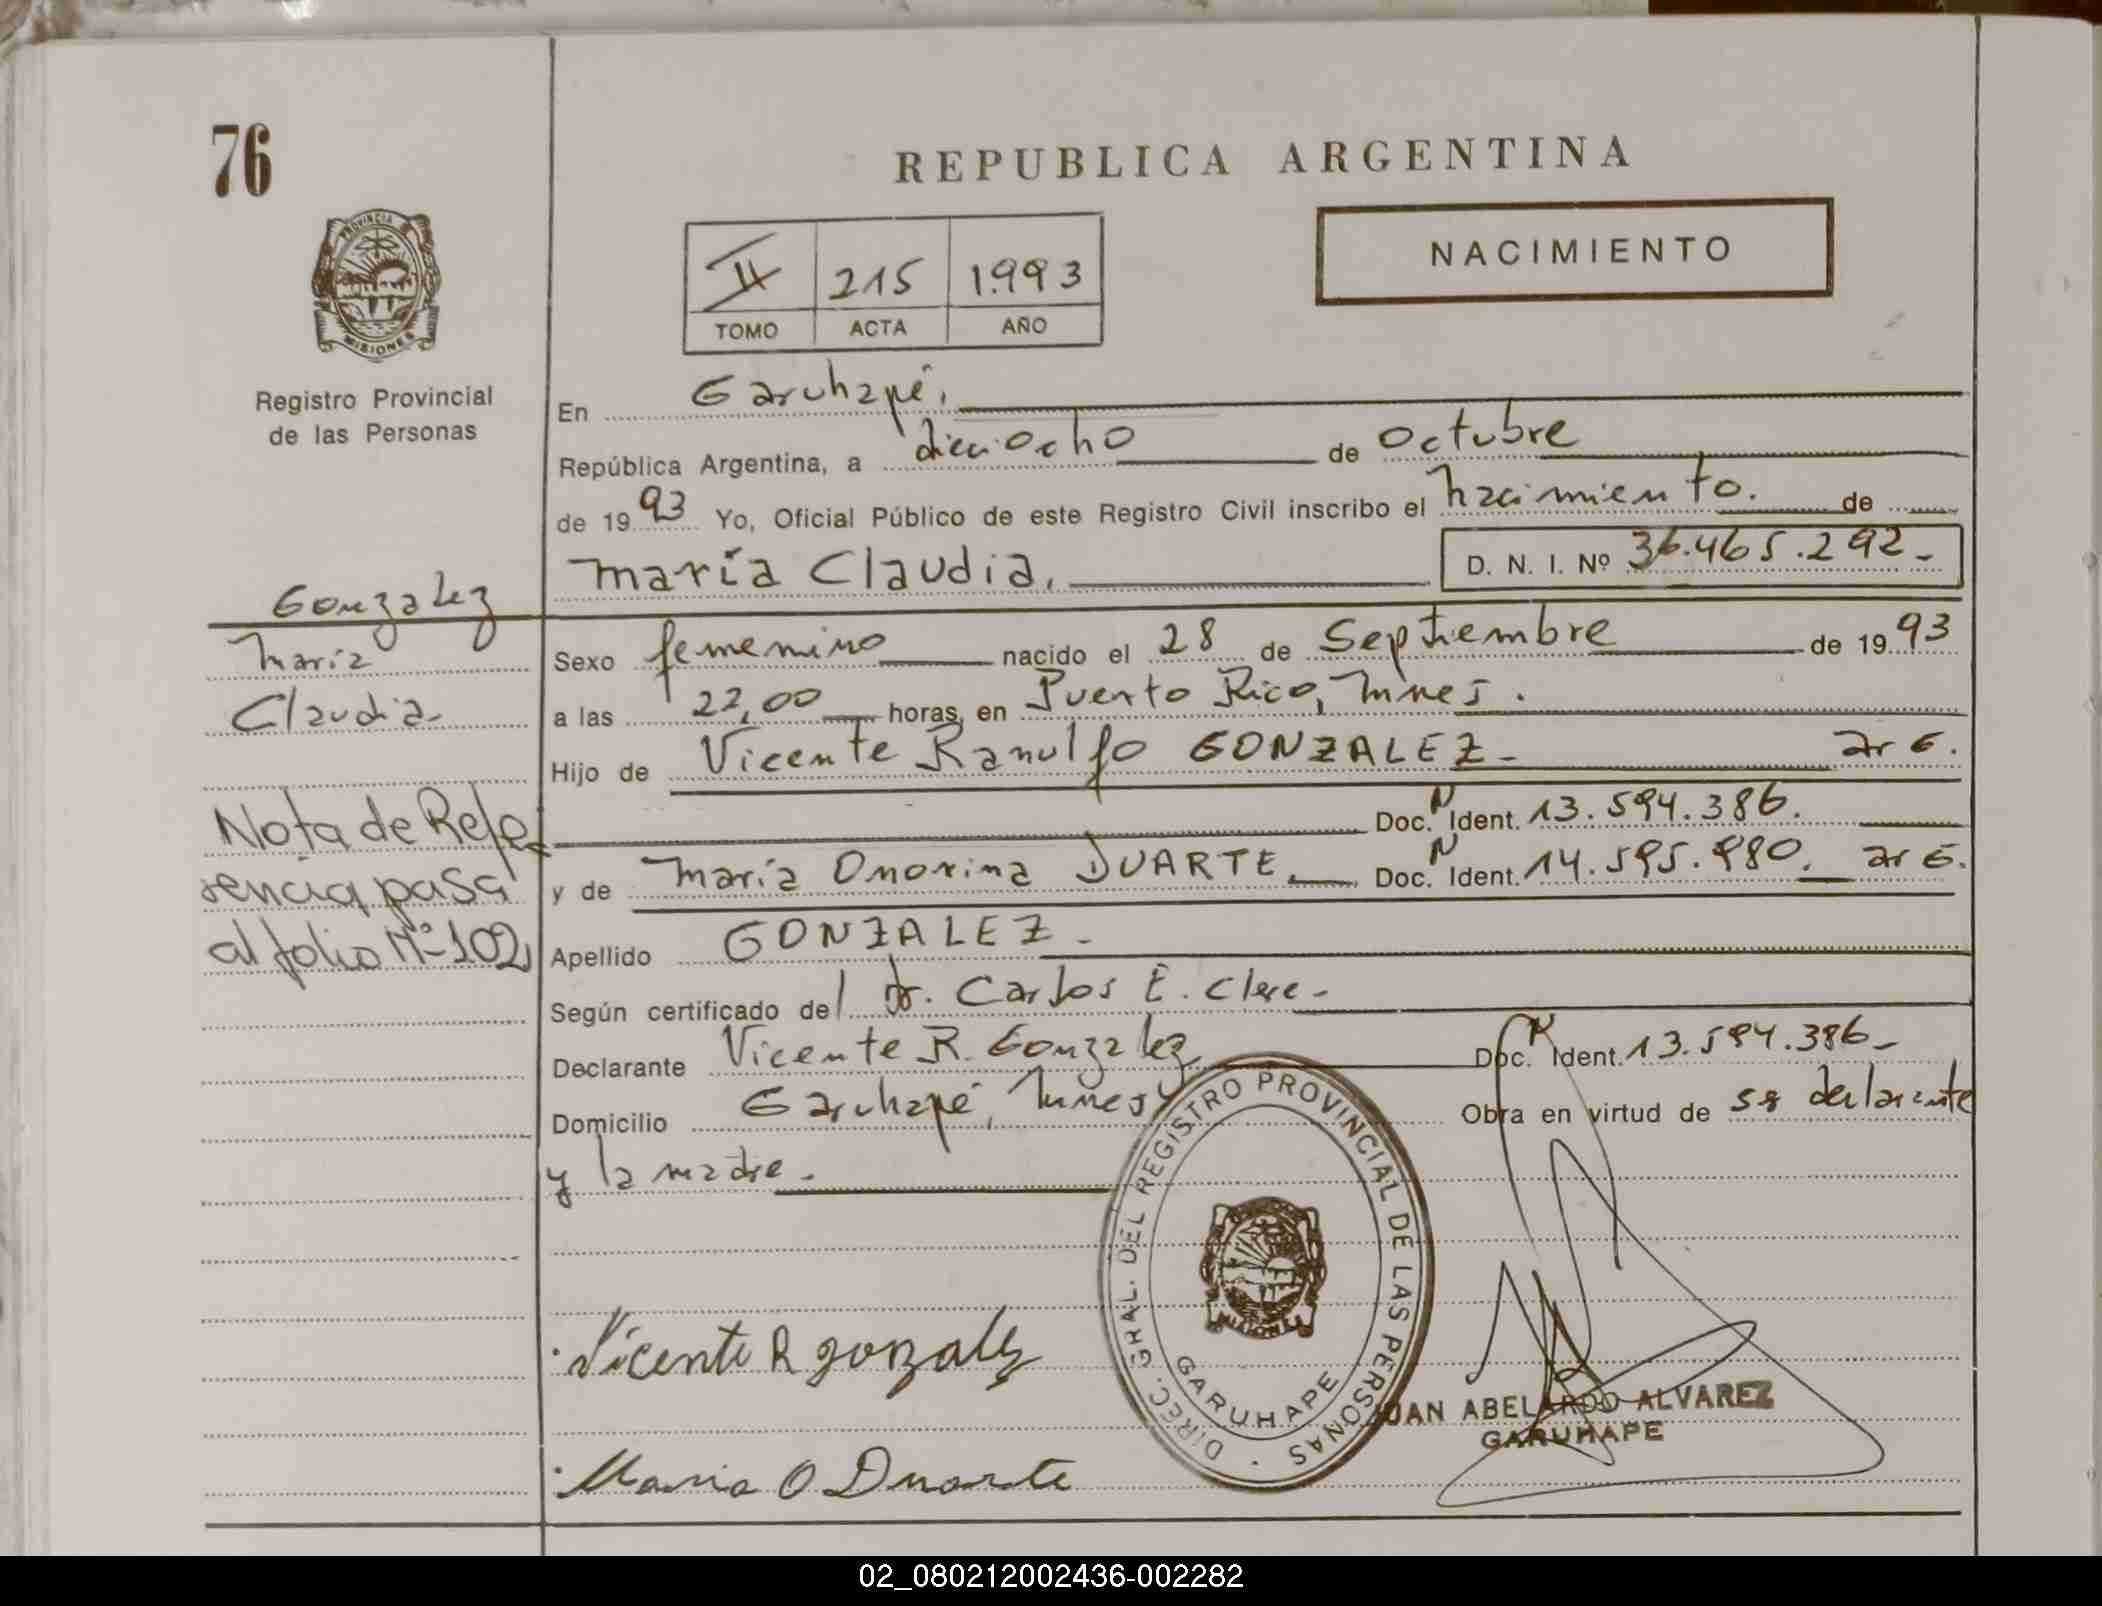 76
REPUBLICA ARGENTINA
PROVINCIA
MISIONES
II 215 1.993
TOMO ACTA AÑO
NACIMIENTO
Registro Provincial
de las Personas
En Garuhapé,
República Argentina, a dieciocho de Octubre
de 1993 Yo, Oficial Público de este Registro Civil inscribo el nacimiento. de
María Claudia, D. N. I. Nº 36.465.292-
Gonzalez
María
Claudia-
Sexo femenino nacido el 28 de Septiembre de 1993
a las 22,00 horas, en Puerto Rico, Mnes.
Hijo de Vicente Ranulfo GONZALEZ- arg.
Doc. N Ident. 13.594.386.
y de María Onorina DUARTE, Doc. N Ident. 14.595.980. arg.
Nota de Refe
rencia, pasa
al folio Nº 102
Apellido GONZALEZ-
Según certificado del Dr. Carlos E.
Declarante Vicente R. Gonzalez Doc. N Ident. 13.594.386-
Domicilio Garuhapé, Mnes Obra en virtud de ss declarante
y la madre.
DIREC. GRAL. DEL REGISTRO PROVINCIAL DE LAS PERSONAS
MISIONES
GARUHAPE
Vicente R gonzalez
JUAN ABELARDO ALVAREZ
GARUHAPE
Maria O Duarte
02_080212002436-002282